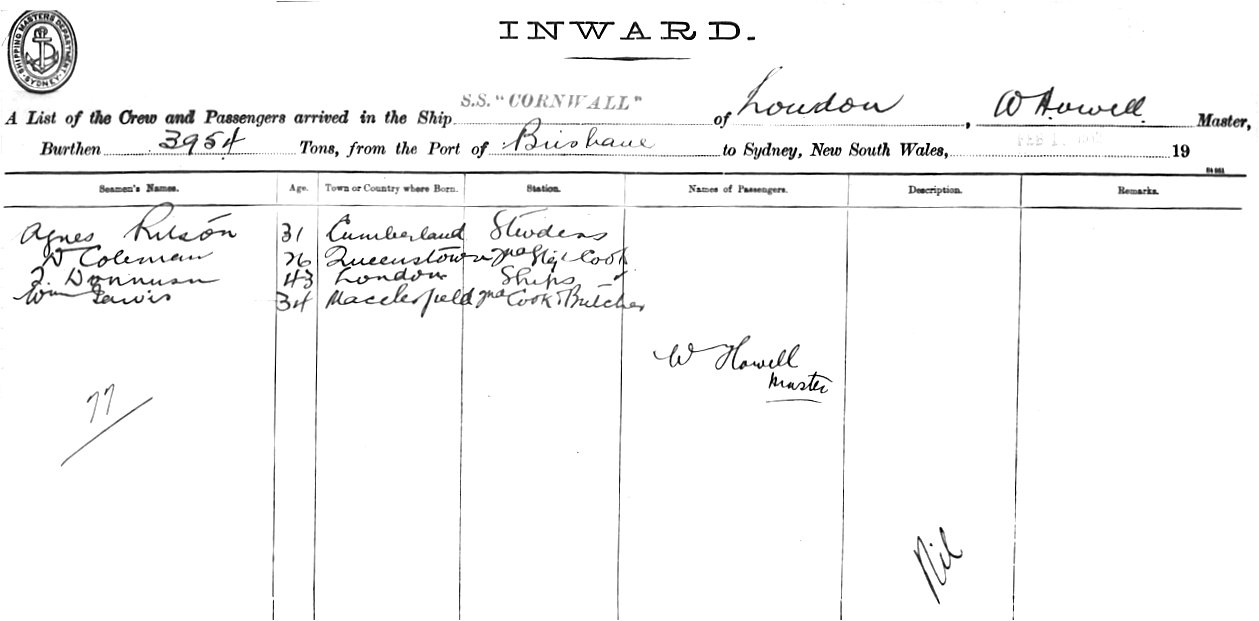 INWARD.
SHIPPING MASTERS DEPARTMENT SYDNEY
A List of the Crew and Passengers arrived in the Ship S.S. "CORNWALL" of London, W Howell Master,
Burthen 3954 Tons, from the Port of Brisbane to Sydney, New South Wales, FEB 19
Seamen's Names. Age. Town or Country where Born. Station. Names of Passengers. Description. Remarks.
Agnes 31 Cumberland Stwdess
W Coleman 26 Queenstown Cook
43 London Ships "
Wm 34 Macclesfield Cook & Butcher
W Howell
Master
77
Nil